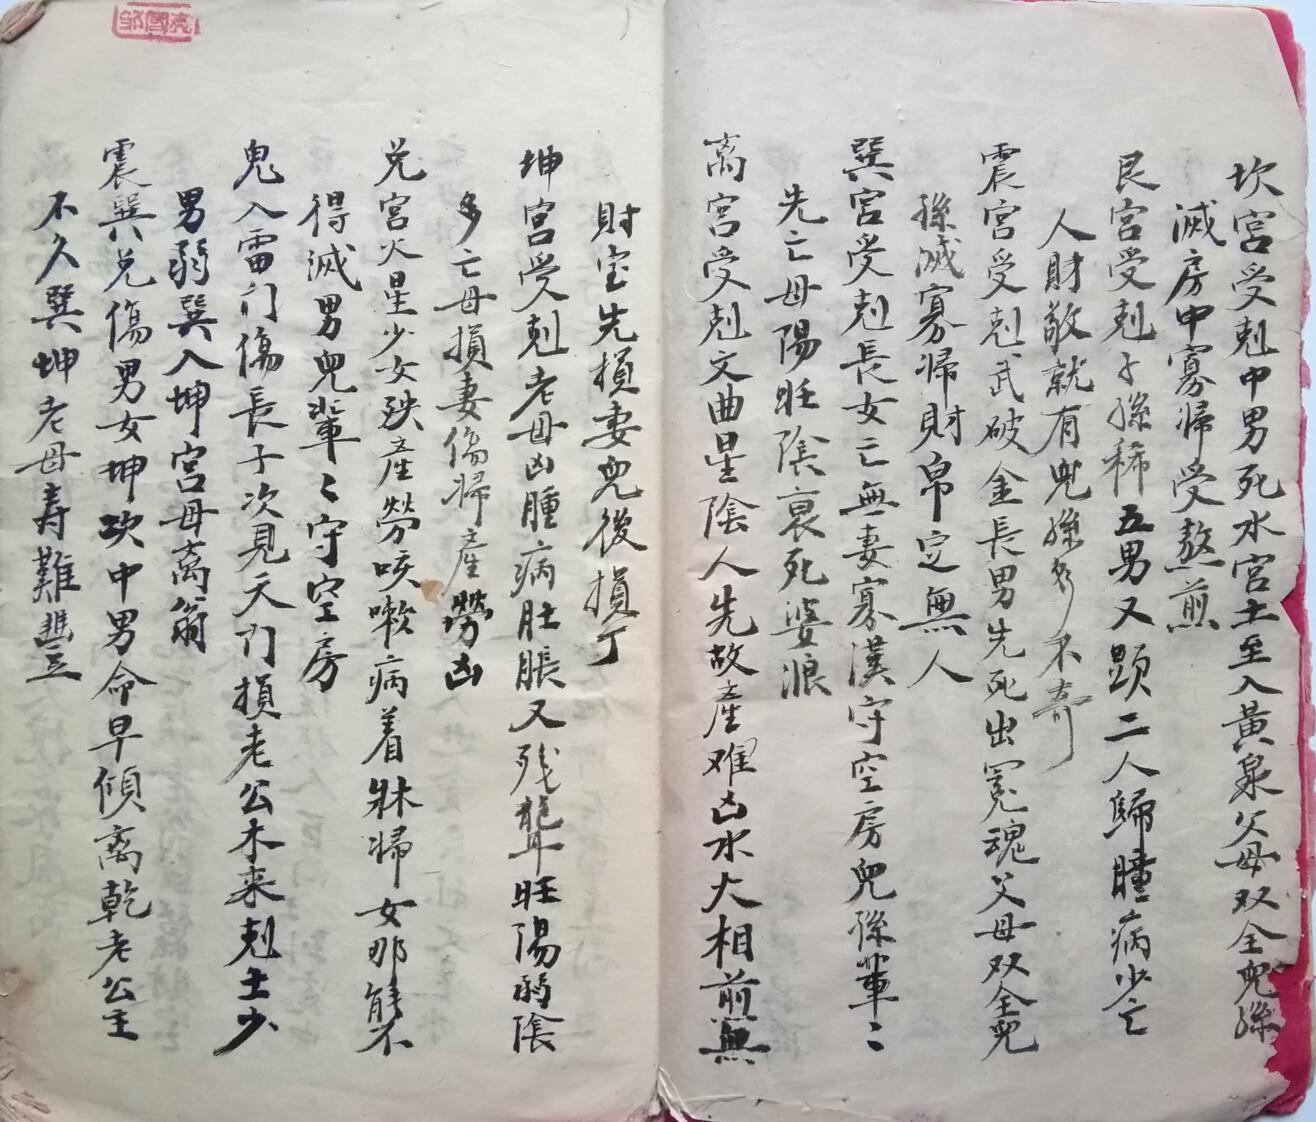 坎宮受剋中男死水宮土至入黃泉父母双全兒孫
滅房中寡婦受熬煎
艮宮受剋子孫稀五男又題二人歸瞳病少亡
人財敬就有兒孫多不奇
震宮受剋武破金長男先死出冤魂父母双全兒
孫滅寡婦財帛定無人
巽宮受剋長女亡無妻寡漢守空房兒孫輩〻
先亡母陽旺陰衰死婆浪
离宮受剋文曲星陰人先故產难凶水大相煎無
財宝先損妻兒後損丁
坤宮受剋老母凶腫病肚脹又残聾旺陽弱陰
多亡母損妻傷婦產勞凶
兌宮火星少女殃產勞咳嗽病着牀婦女那能不
得滅男兒輩〻守空房
鬼入雷门傷長子次見天门損老公木来剋土少
男弱巽入坤宮母离翁
震巽兌傷男女坤坎中男命早傾离乾老公主
不久巽坤老母寿難豊